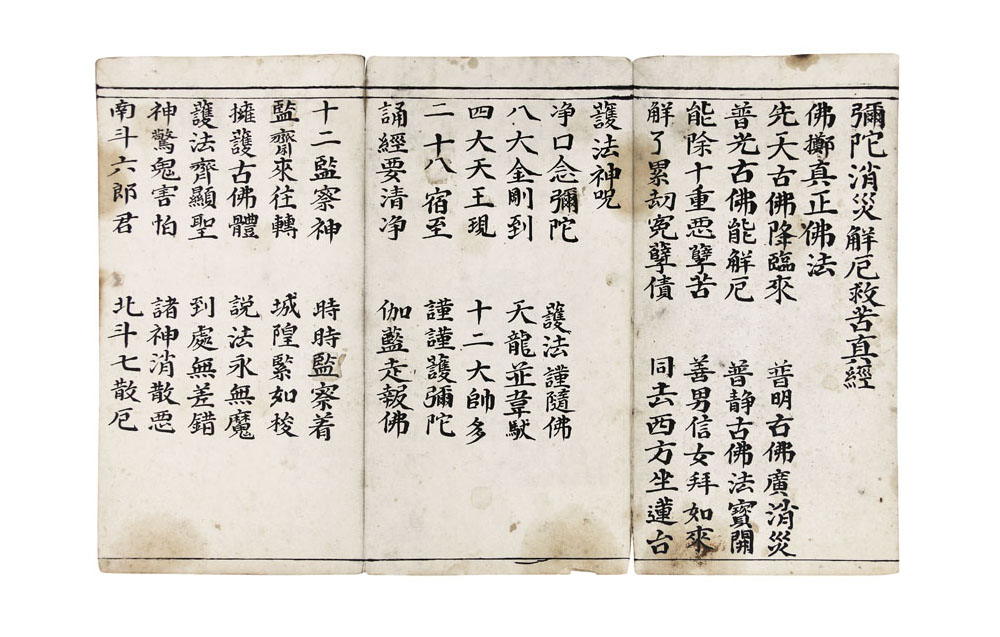 彌陀消災解厄救苦真經
佛擲真正佛法
先天古佛降臨來　普明古佛廣消災
普光古佛能解厄　普静古佛法寳開
能除十重惡孽苦　善男信女拜如來
解了累刧寃孽債　同去西方坐蓮台
護法神呪
净口念彌陀　護法謹隨佛
八大金剛到　天龍並韋馱
四大天王現　十二大帥多
二十八宿至　謹謹護彌陀
誦經要清净　伽藍走報佛
十二監察神　時時監察着
監齋來往轉　城隍緊如梭
擁護古佛體　説法永無魔
護法齊顯聖　到處無差錯
神驚鬼害怕　諸神消散惡
南斗六郎君　北斗七散厄